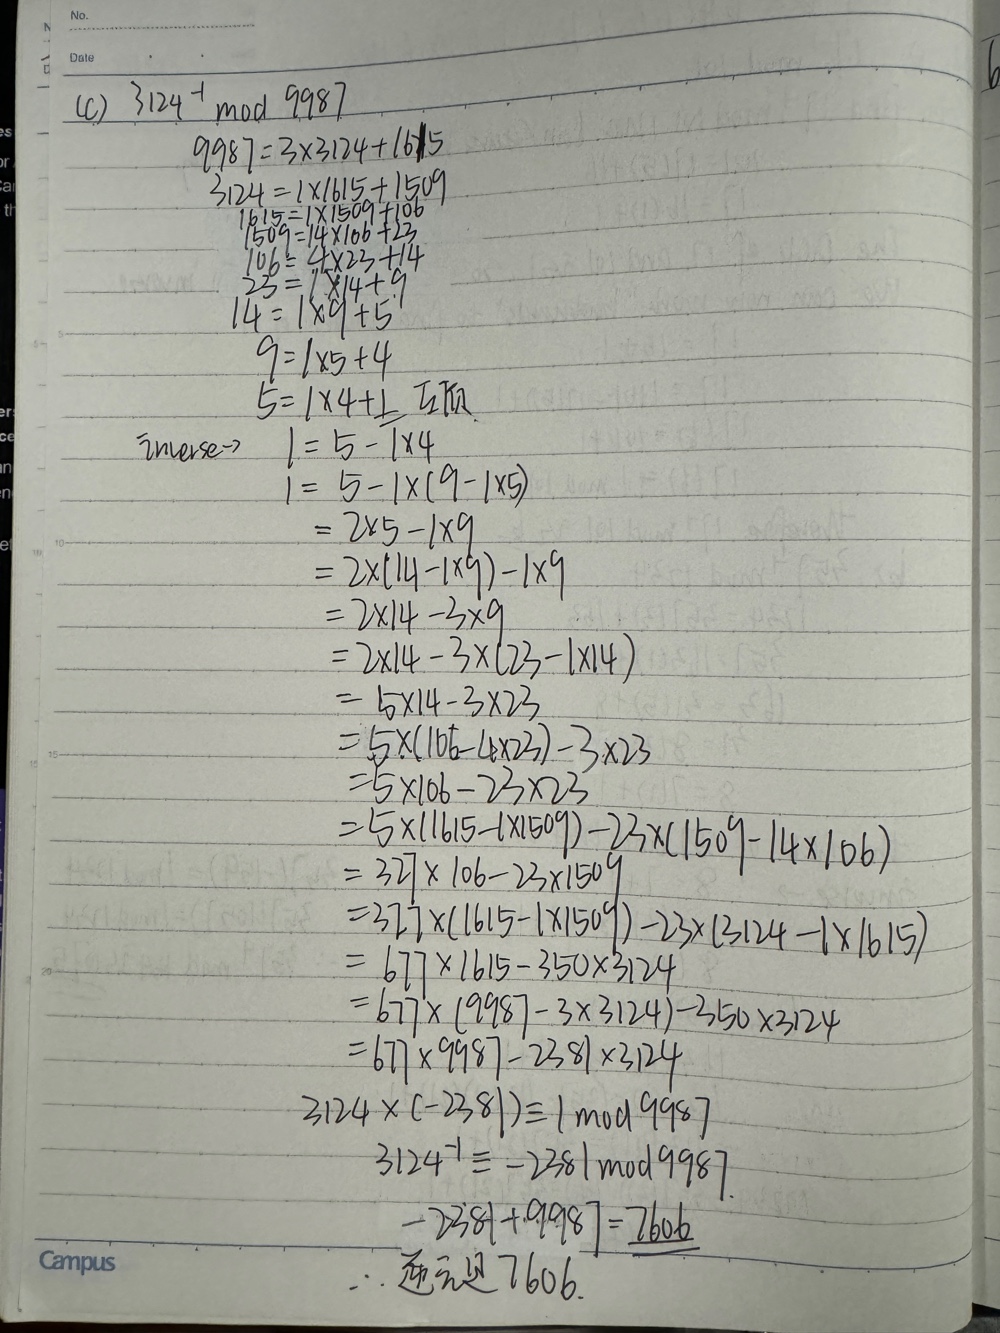 No.
Date
(c) 3124⁻¹ mod 9987
9987=3×3124+1615
3124=1×1615+1509
1615=1×1509+106
1509=14×106+23
106=4×23+14
23=1×14+9
14=1×9+5
9=1×5+4
5=1×4+1 互质
inverse→ 1=5-1×4
1=5-1×(9-1×5)
=2×5-1×9
=2×(14-1×9)-1×9
=2×14-3×9
=2×14-3×(23-1×14)
=5×14-3×23
=5×(106-4×23)-3×23
=5×106-23×23
=5×(1615-1×1509)-23×(1509-14×106)
=327×106-23×1509
=327×(1615-1×1509)-23×(3124-1×1615)
=677×1615-350×3124
=677×(9987-3×3124)-350×3124
=677×9987-2381×3124
3124×(-2381)≡1 mod 9987
3124⁻¹≡-2381 mod 9987.
-2381+9987=7606
∴逆元是7606.
Campus